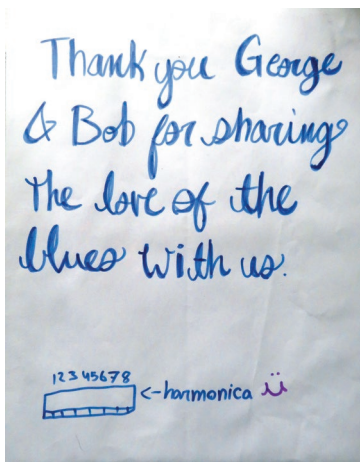 Thank you George
& Bob for sharing
the love of the
blues with us.
12345678
<-harmonica ü